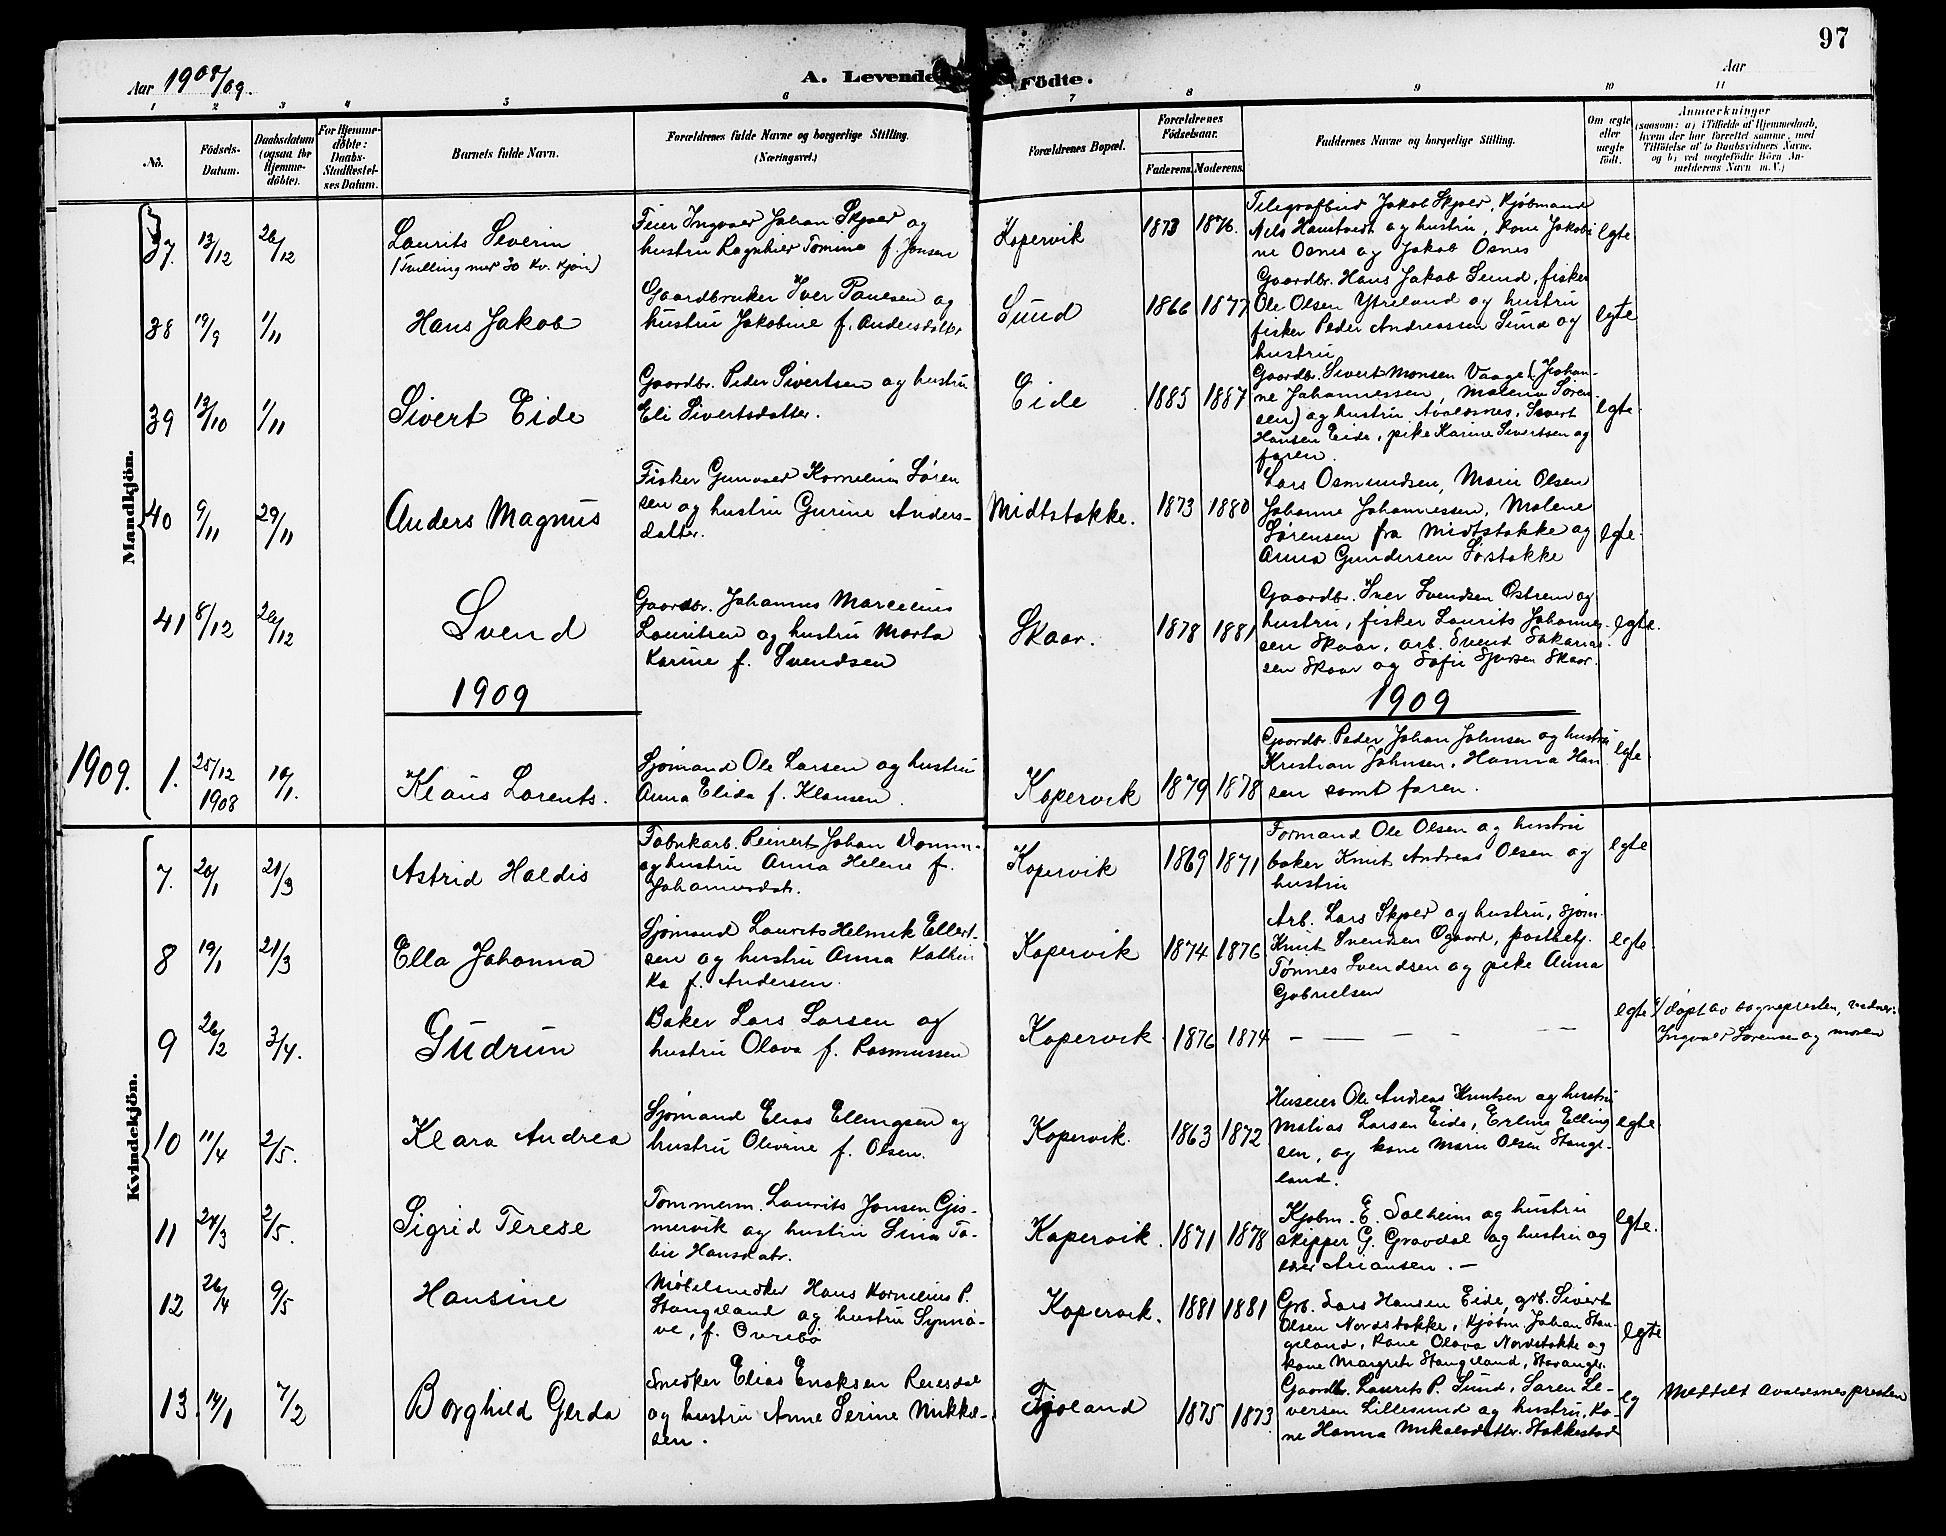 97
Aar 1908/09.
A. Levende Födte.
Aar
1 2 3 4 5 6 7 8 9 10 11
No.
Födsels-Datum.
Daabsdatum (ogsaa for Hjemme-döbte).
For Hjemme-döbte: Daabs-Stadfæstel-ses Datum.
Barnets fulde Navn.
Forældrenes fulde Navne og borgerlige Stilling. (Næringsvei.)
Forældrenes Bopæl.
Forældrenes Födselsaar.
Faderens. Moderens.
Faddernes Navne og borgerlige Stilling.
Om ægte eller uægte født.
Anmærkninger
(saasom: a) i Tilfælde af Hjemmedaab,
hvem der har forrettet samme, med
Tilföielse af to Daabsvidners Navne,
og b) ved uægtefödte Börn An-
melderens Navn m. V.)
Mandkjön.
37. 13/12 26/12
Laurits Severin
(Tvilling med 30 Kv. Kjön)
Feier Ingvald Johan Skjold og
hustru Ragnhild Tomine f. Jonsen
Kopervik 1873 1876.
Telegrafbud Jakob Skjold, Kjøbmand
Nils Hamtvedt og hustru, kone Jakobi
ne Osnes og Jakob Osnes
egte
38 19/9 1/11
Hans Jakob
Gaardbruker Iver Paulsen og
hustru Jakobine f. Andersdatter
Sund 1866 1877
Gaardbr. Hans Jakob Sund, fisker
Ole Olsen Ytreland og hustru
fisker Peder Andreassen Sund og
hustru
egte
39 13/10 1/11
Sivert Eide
Gaardbr. Peder Sivertsen og hustru
Eli Sivertsdatter.
Eide 1885 1887
Gaardbr. Sivert Monsen Vaage (Johan-
ne Johannessen, Malena Søren-
sen) og hustru Avaldsnes. Sivert
Hansen Eide, pike Karine Sivertsen og
faren.
egte
40 9/11 29/11
Anders Magnus
Fisker Gunvald Kornelius Søren
sen og hustru Gurine Anders-
datter.
Midtstokke. 1873 1880
Lars Osmundsen, Marie Olsen
Johanne Johannessen, Malene
Sørensen fra Midtstokke og
Anna Gundersen Sørstokke
egte.
41 8/12 26/12
Svend
Gaardbr. Johannes Marcelius
Lauritsen og hustru Marta
Karine f. Svendsen
Skaar. 1878 1881
Gaardbr. Iver Svendsen Østrem og
hustru, fisker Laurits Johannes-
sen Skaar, arb. Svend Sakarias-
sen Skaar og Sofie Sjursen Skaar.
egte.
1909
1909
1909. 1. 25/12 1908 10/1.
Klaus Lorents.
Sjømand Ole Larsen og hustru
Anna Elida f. Klausen.
Kopervik 1879 1878
Gaardbr. Peder Johan Johnsen og hustru
Kristian Johnsen, Hanna Han
sen samt faren.
egte.
Kvindekjön.
7. 20/1 21/3
Astrid Haldis
Fabrikarb. Reinert Johan
og hustru Anna Helene f.
Johannesdtr.
Kopervik 1869 1871
Formand Ole Olsen og hustru
baker Knut Andreas Olsen og
hustru
egte
8 19/1 21/3
Ella Johanna
Sjømand Laurits Helmik Ellert-
sen og hustru Anna Kathin
ka f. Andersen.
Kopervik 1874 1876
Arb. Lars Skjold og hustru, sjøm.
Knut Svendsen Ogaard, postbetj.
Tønnes Svendsen og pike Anna
Gabrielsen
egte.
9 26/2 3/4.
Gudrun
Baker Lars Larsen og
hustru Olava f. Rasmussen
Kopervik. 1876 1874
- — — — —
egte
a/ døpt av sognepresten, vidner:
Ingvald Sørensen og moren
10 11/4 2/5.
Klara Andrea
Sjømand Elias Ellingsen og
hustru Olivine f. Olsen.
Kopervik. 1863 1872
Huseier Ole Andreas Knutsen og hustru
Matias Larsen Eide, Erling Elling
sen, og kone Marie Olsen Stange-
land.
egte
11 24/3 2/5.
Sigrid Terese
Tømmerm. Laurits Jonsen Gis-
mervik og hustru Sina To-
bie Hansdatr.
Kopervik. 1871 1878
Kjøbm. E. Solheim og hustru
skipper G. Gravdal og hustru og
Ariansen. —
egte.
12 26/4 9/5
Hansine
Møbelsnedker Hans Kornelius P.
Stangeland og hustru Synnø-
ve, f. Ovrebø
Kopervik. 1881 1881
Grb. Lars Hansen Eide, grb. Sivert
Olsen Nordstokke, Kjøbm. Johan Stan-
geland, Kone Olava Nordstokke og
kone Margrete Stangeland, Stavanger.
egte
13. 14/1 7/2
Borghild Gerda
Snedker Elias Enoksen Reiesdal
og hustru Anne Serine Mikkel-
sen.
Fjoland 1875 1873
Gaardb. Laurits P. Sund, Søren Si-
versen Lillesund og hustru, Ko-
ne Hanna Mikalsdatter Stokkestad
eg
Meddelt Avaldsnespresten